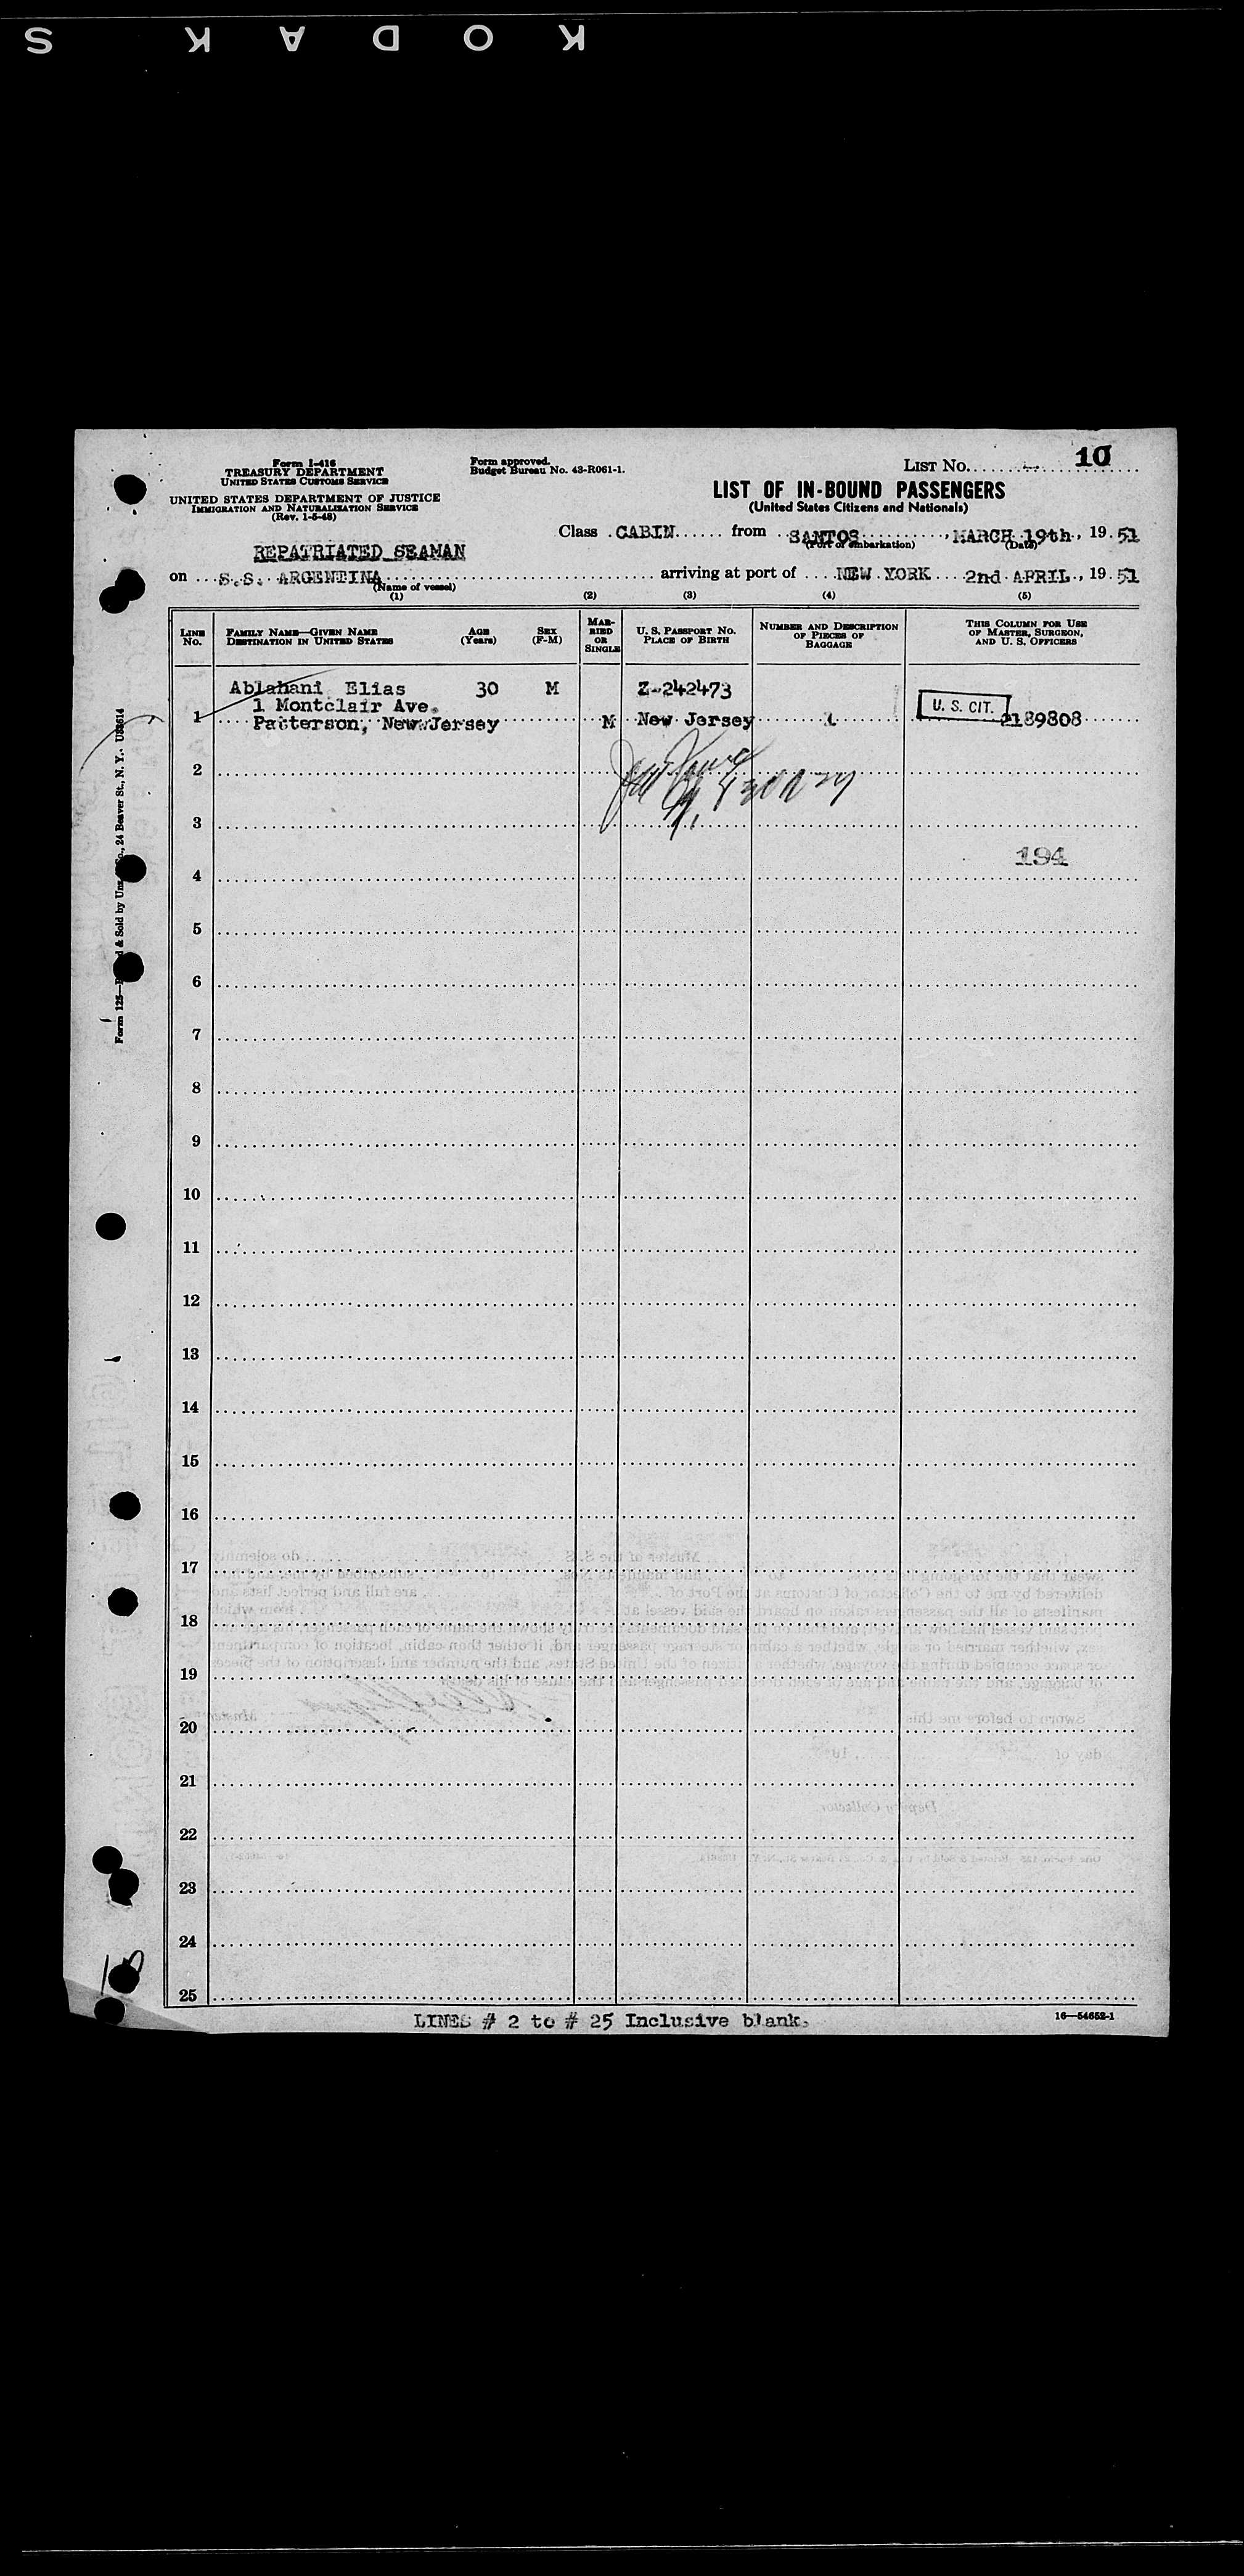 KODAK S
Form I-416
TREASURY DEPARTMENT
UNITED STATES CUSTOMS SERVICE
UNITED STATES DEPARTMENT OF JUSTICE
IMMIGRATION AND NATURALIZATION SERVICE
(Rev. 1-5-48)
Form approved.
Budget Bureau No. 43-R061-1.
LIST No. 10
LIST OF IN-BOUND PASSENGERS
(United States Citizens and Nationals)
Class CABIN from SANTOS, MARCH 19th, 19 51
(Port of embarkation) (Date)
REPATRIATED SEAMAN
on S.S. ARGENTINA arriving at port of NEW YORK 2nd APRIL, 19 51
(Name of vessel)
(1) (2) (3) (4) (5)
LINE No. FAMILY NAME—GIVEN NAME DESTINATION IN UNITED STATES AGE (Years) SEX (F-M) MARRIED OR SINGLE U. S. PASSPORT No. PLACE OF BIRTH NUMBER AND DESCRIPTION OF PIECES OF BAGGAGE THIS COLUMN FOR USE OF MASTER, SURGEON, AND U. S. OFFICERS
Ablahani Elias 30 M Z-242473
1 Montclair Ave.
1 Patterson, New Jersey M New Jersey U. S. CIT. 2189808
2
3
194
4
5
6
7
8
9
10
11
12
13
14
15
16
17
18
19
20
21
22
23
24
25
LINES # 2 to # 25 Inclusive blank.
16—54652-1